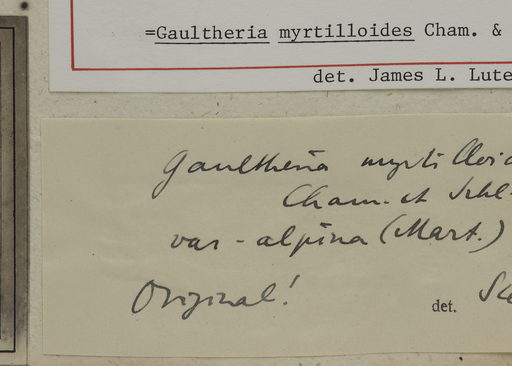 =Gaultheria myrtilloides Cham. &
det. James L. Lute
Gaultheria myrtilloi
Cham. et Schl.
var - alpina (Mart.)
Original!
det.